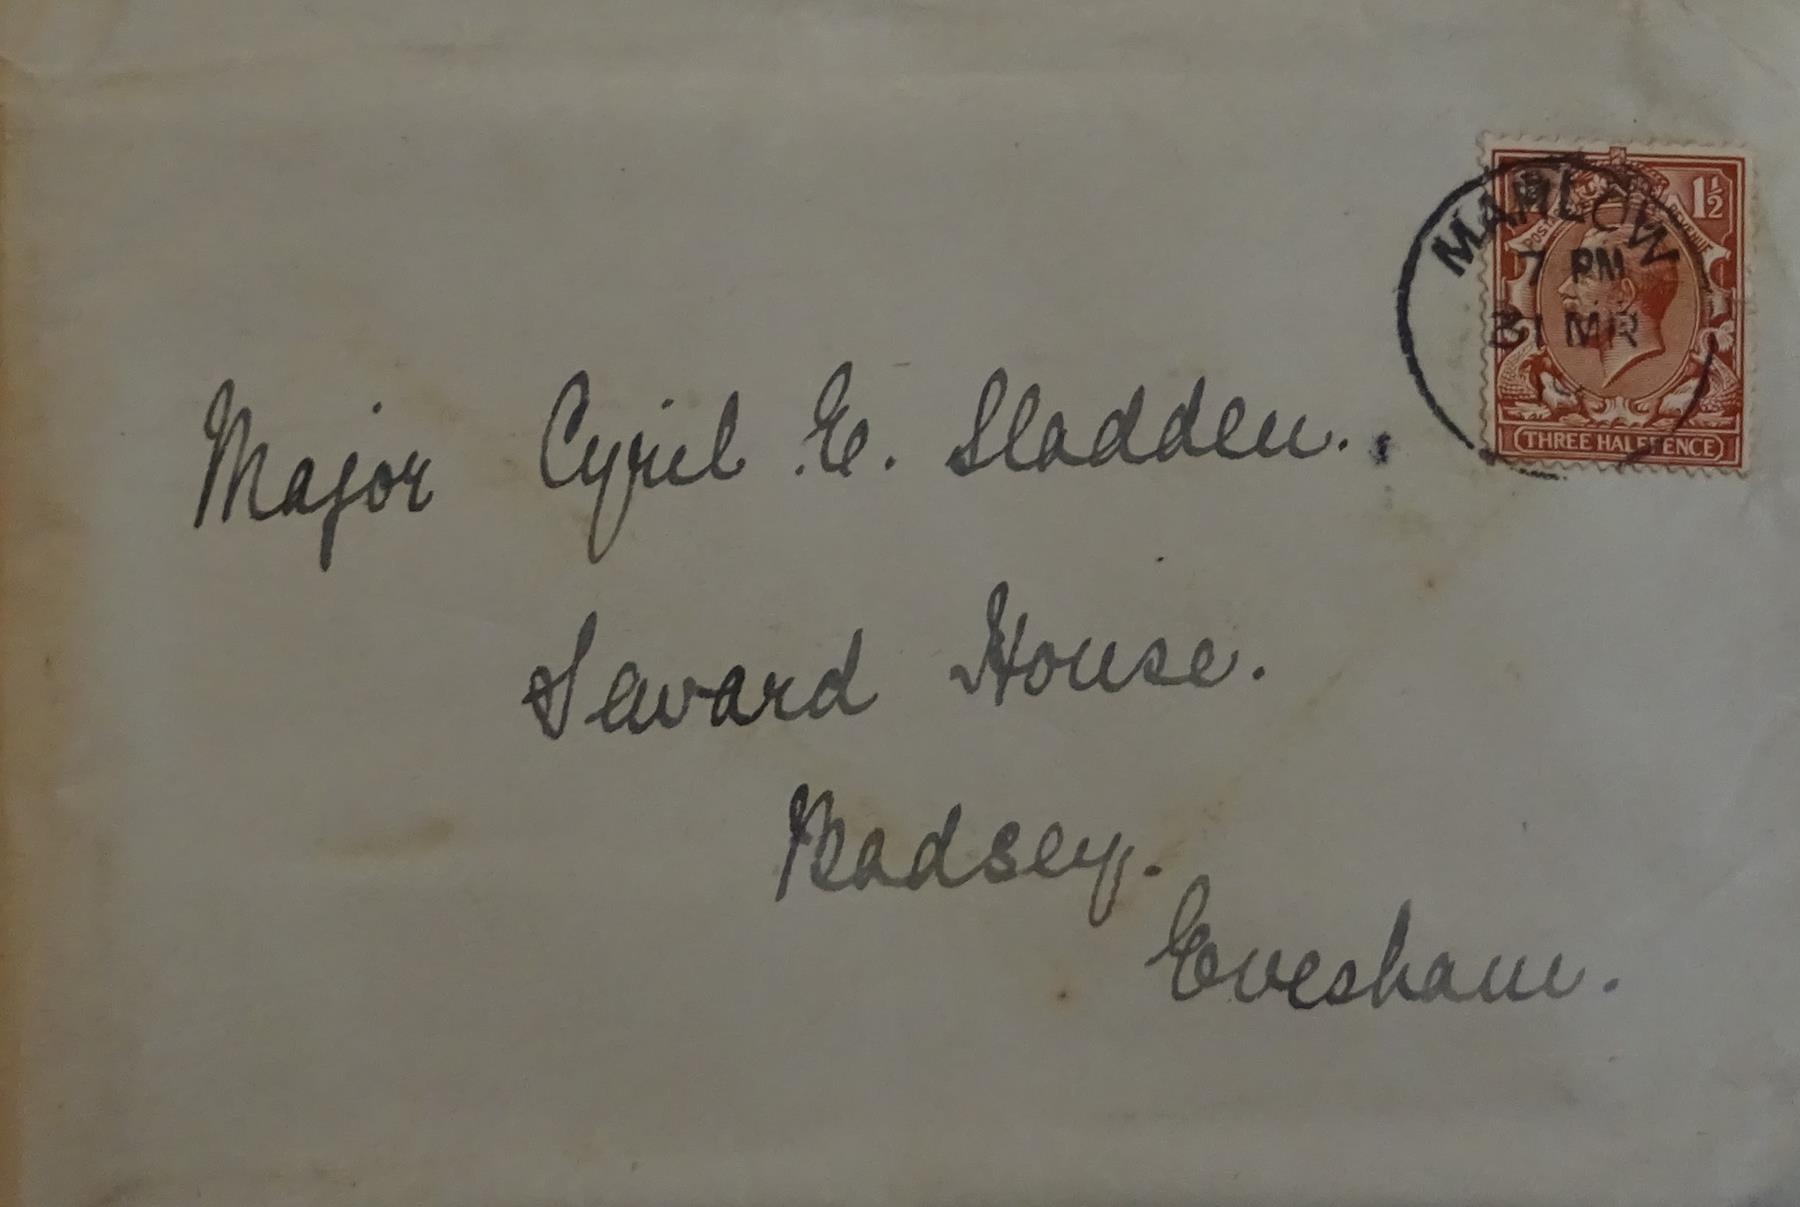 MARLOW
7 PM
31 MR
POSTAGE REVENUE
1½
THREE HALFPENCE
Major Cyril E. Sladden.
Seward House.
Badsey.
Evesham.